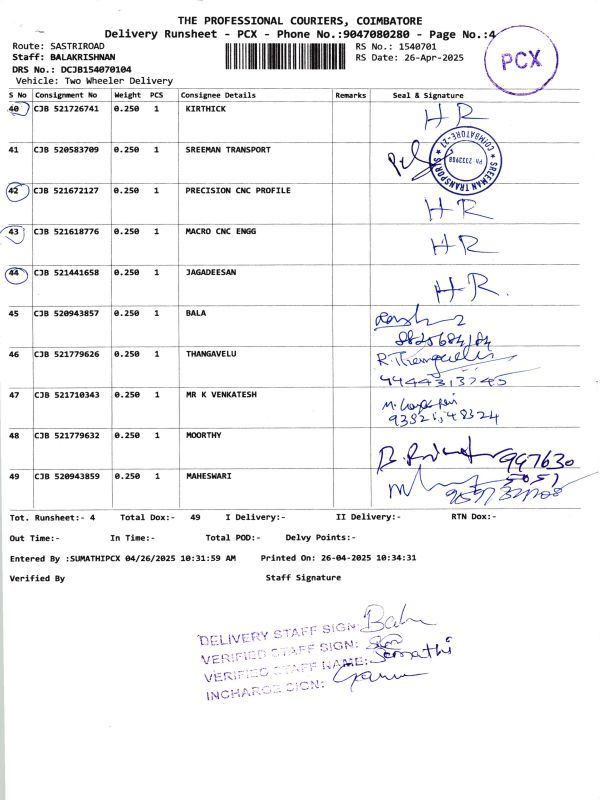 THE PROFESSIONAL COURIERS, COIMBATORE
Delivery Runsheet - PCX - Phone No.:9047080280 - Page No.:4
Route: SASTRIROAD
RS No.: 1540701
Staff: BALAKRISHNAN
RS Date: 26-Apr-2025
PCX
DRS No.: DCJB154070104
Vehicle: Two Wheeler Delivery
S No Consignment No Weight PCS Consignee Details Remarks Seal & Signature
40 CJB 521726741 0.250 1 KIRTHICK HR
41 CJB 520583709 0.250 1 SREEMAN TRANSPORT
SREEMAN TRANSPORT ★ COIMBATORE-27 ★
42 CJB 521672127 0.250 1 PRECISION CNC PROFILE HR
43 CJB 521618776 0.250 1 MACRO CNC ENGG HR
44 CJB 521441658 0.250 1 JAGADEESAN HR.
45 CJB 520943857 0.250 1 BALA
46 CJB 521779626 0.250 1 THANGAVELU R.Thangavelu
9444313745
47 CJB 521710343 0.250 1 MR K VENKATESH
48 CJB 521779632 0.250 1 MOORTHY 997630
5051
49 CJB 520943859 0.250 1 MAHESWARI
Tot. Runsheet:- 4 Total Dox:- 49 I Delivery:- II Delivery:- RTN Dox:-
Out Time:- In Time:- Total POD:- Delvy Points:-
Entered By :SUMATHIPCX 04/26/2025 10:31:59 AM Printed On: 26-04-2025 10:34:31
Verified By Staff Signature
DELIVERY STAFF SIGN: Balu
VERIFIED STAFF SIGN:
VERIFIED STAFF NAME: Sumathi
INCHARGE SIGN: